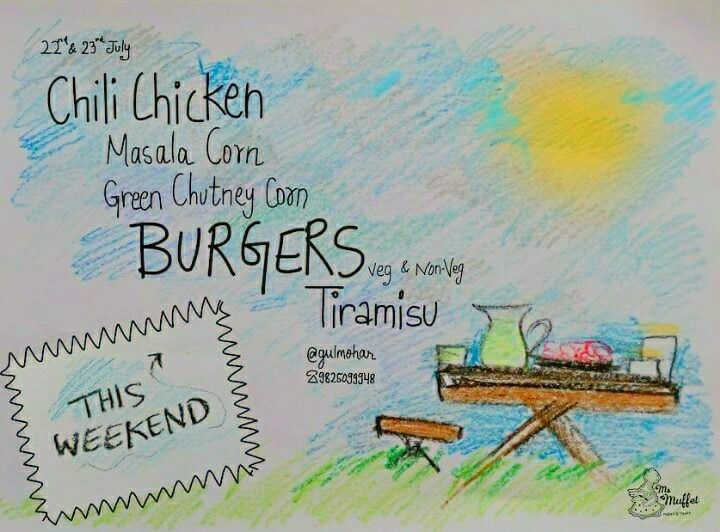 22nd & 23rd July
Chili Chicken
Masala Corn
Green Chutney Corn
BURGERS Veg & Non-Veg
Tiramisu
@gulmohar
9825099948
THIS
WEEKEND
Ms
Muffet